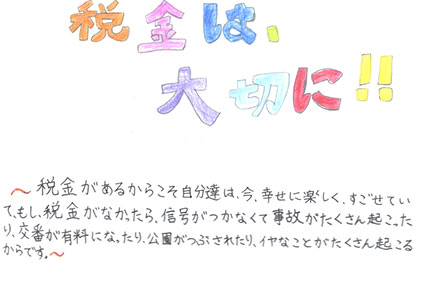 税金は、
大切に!!
～税金があるからこそ自分達は、今、幸せに楽しく、すごせてい
て、もし、税金がなかったら、信号がつかなくて事故がたくさん起こった
り、交番が有料になったり、公園がつぶされたり、イヤなことがたくさん起こる
からです。～